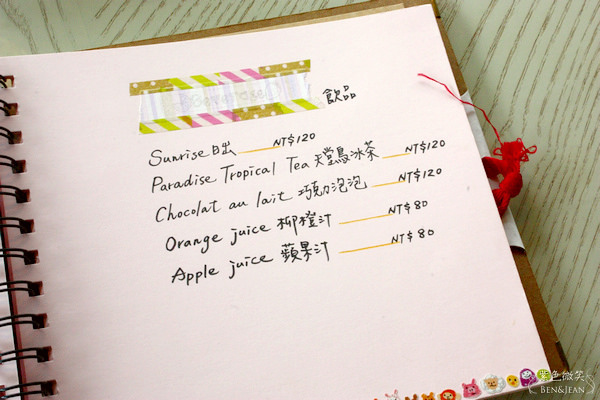 Beverage
飲品
Sunrise 日出 NT$120
Paradise Tropical Tea 天堂鳥冰茶 NT$120
Chocolat au lait 巧克力泡泡 NT$120
Orange juice 柳橙汁 NT$80
Apple juice 蘋果汁 NT$80
紫色微笑
BEN&JEAN